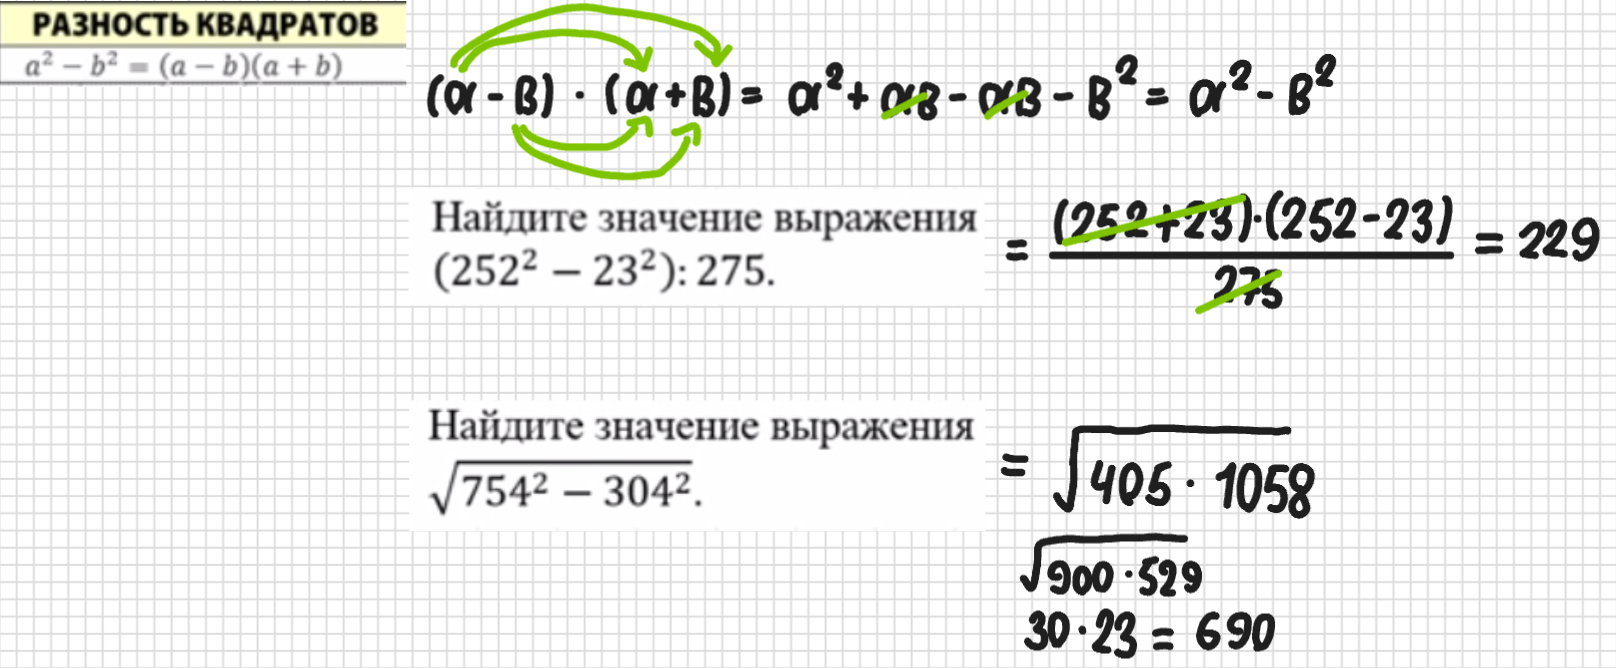 РАЗНОСТЬ КВАДРАТОВ
a² − b² = (a − b)(a + b)
(a - в) · (a + в) = a² + aв - aв - в² = a² - в²
Найдите значение выражения
(252² − 23²): 275.
= (252+23)·(252-23) / 275 = 229
Найдите значение выражения
√754² − 304².
= √405 · 1058
√900 · 529
30 · 23 = 690